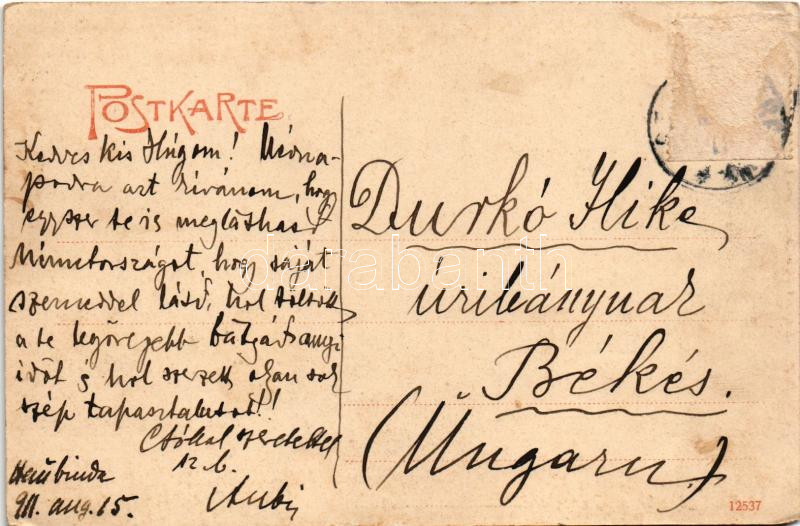 POSTKARTE
Kedves kis Húgom! Névna-
podra azt kívánom, hogy
egyszer te is megláthasd
Németországot, hogy saját
szemeddel lásd, hol töltött
a te legöregebb bátyád annyi
időt s hol szerzett olyan sok
szép tapasztalatot!!
Csókol szeretettel
Haubinda
911. aug. 15.
Durkó Ilike
úribánynak
Békés.
(Ungarn)
12537
darabanth